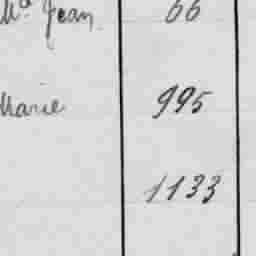 Ma Jean 66
Marie 995
1133